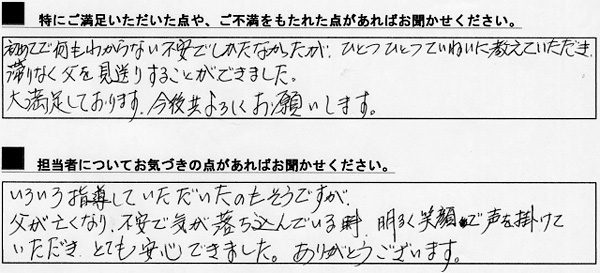 特にご満足いただいた点や、ご不満をもたれた点があればお聞かせください。
初めてで何もわからない不安でしかたなかったが、ひとつひとつていねいに教えていただき
滞りなく父を見送りすることができました。
大満足しております。今後共よろしくお願いします。
担当者についてお気づきの点があればお聞かせください。
いろいろ指導していただいたのもそうですが、
父が亡くなり、不安で気が落ち込んでいる時、明るく笑顔で声を掛けて
いただき、とても安心できました。ありがとうございます。